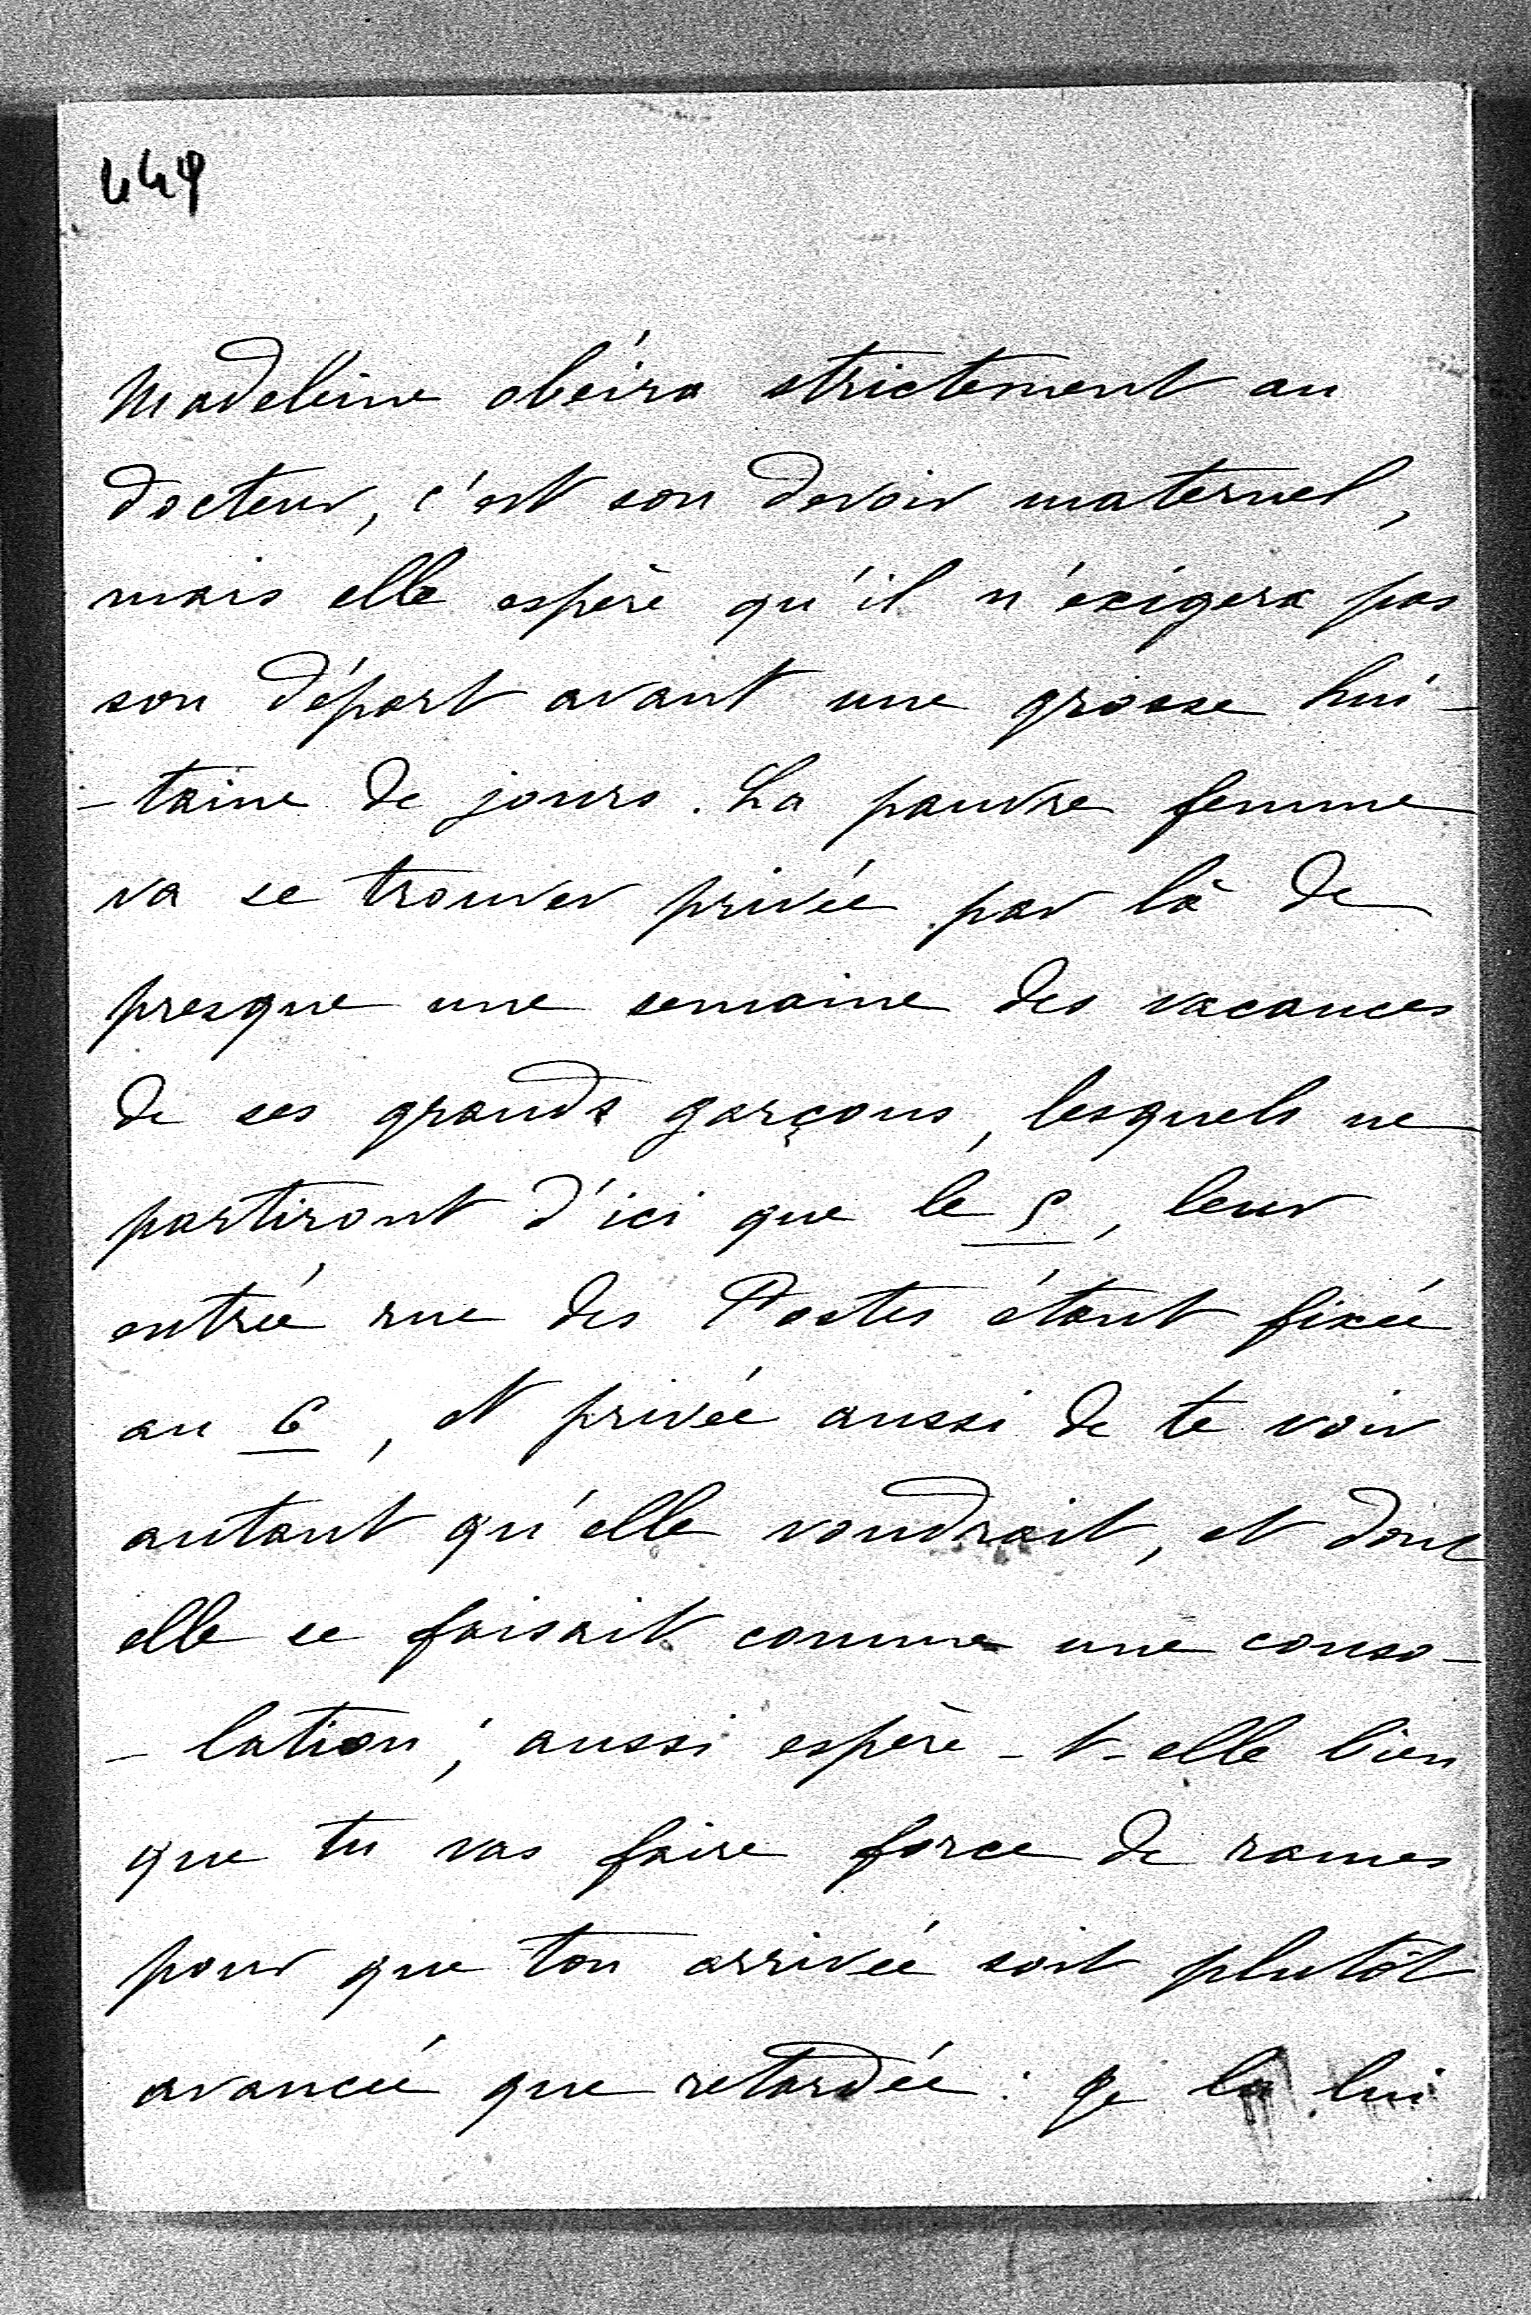 449
Madeleine obéira strictement au
docteur, c'est son devoir maternel,
mais elle espère qu'il n'éxigera pas
son départ avant une grosse hui-
-taine de jours. La pauvre femme
va se trouver privée par là de
presque une semaine des vacances
de ses grands garçons, lesquels ne
partiront d'ici que le 5, leur
entrée rue des Postes étant fixée
au 6, et privée aussi de te voir
autant qu'elle voudrait, et dont
elle se faisait comme une conso-
-lation; aussi espère-t-elle bien
que tu vas faire force de rames
pour que ton arrivée soit plutôt
avancée que retardée: je la lui